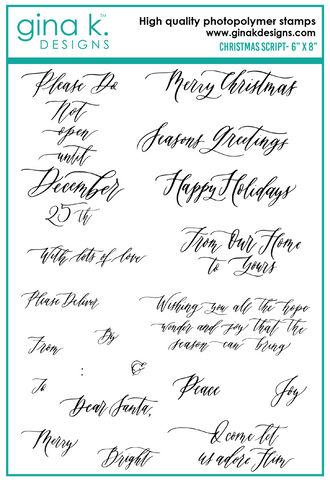 gina k.™
DESIGNS
High quality photopolymer stamps
www.ginakdesigns.com
CHRISTMAS SCRIPT- 6" X 8"
Please Do
Not
open
until
December
25th
Merry Christmas
Seasons Greetings
Happy Holidays
With lots of love
From Our Home
to Yours
Please Deliver
By
From
:
Wishing you all the hope
wonder and joy that the
season can bring
To
Dear Santa,
Peace
Joy
Merry
Bright
O come let
us adore Him